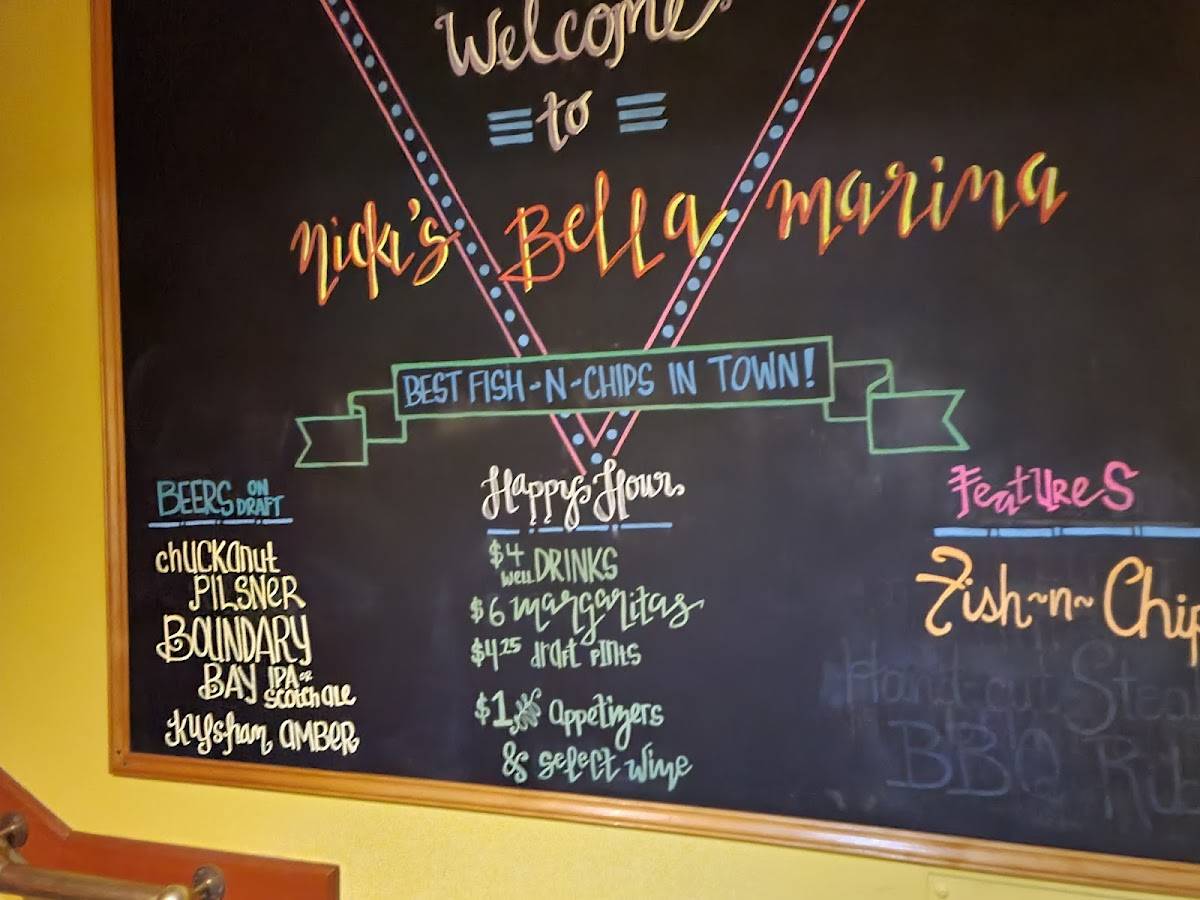 Welcome
to
Nicki's Bella Marina
BEST FISH-N-CHIPS IN TOWN!
BEERS ON DRAFT
Chuckanut
PILSNER
BOUNDARY
BAY IPA or
Scotch ale
Kulshan AMBER
Happy Hour
$4 well DRINKS
$6 margaritas
$4.25 draft pints
$1 off Appetizers
& select wine
Features
Fish~n~Chip
Hand cut Stea
BBQ Rib